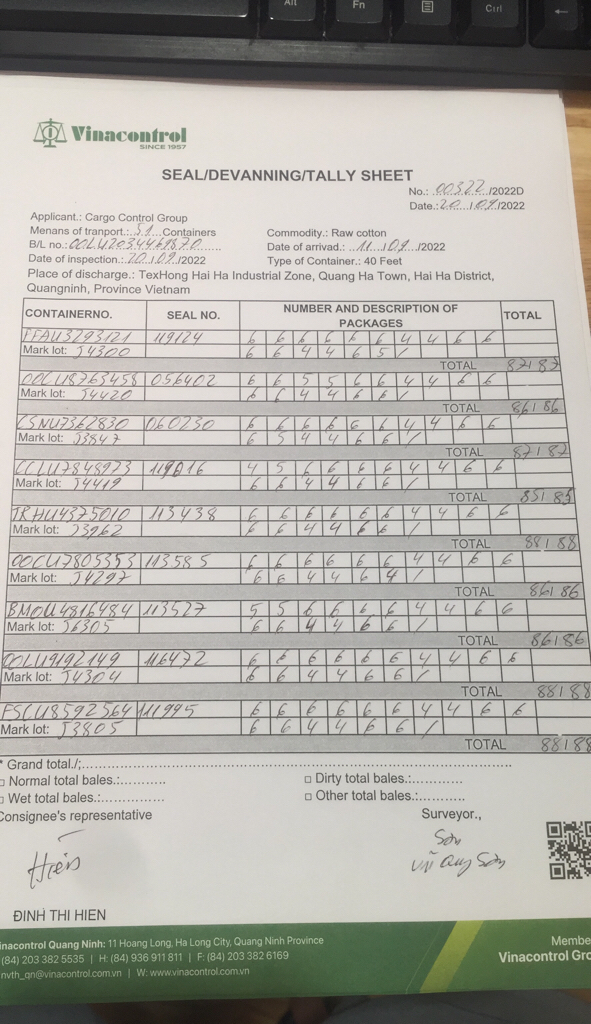 Alt
Fn
Ctrl
Vinacontrol
SINCE 1957
SEAL/DEVANNING/TALLY SHEET
No.: 00322 /2022D
Date.: 20 /09/2022
Applicant.: Cargo Control Group
Menans of tranport.: 51 Containers
Commodity.: Raw cotton
B/L no.: OOLU2034468870
Date of arrivad.: 11 /09 /2022
Date of inspection.: 20/09/2022
Type of Container.: 40 Feet
Place of discharge.: TexHong Hai Ha Industrial Zone, Quang Ha Town, Hai Ha District,
Quangninh, Province Vietnam
CONTAINERNO. SEAL NO. NUMBER AND DESCRIPTION OF PACKAGES TOTAL
FFAU3293121 119124 6 6 6 6 6 6 4 4 6 6
Mark lot: J4300 6 6 4 4 6 5 /
TOTAL 87/87
OOCU8763458 056402 6 6 5 5 6 6 4 4 6 6
Mark lot: J4420 6 6 4 4 6 6 /
TOTAL 86/86
CSNU7362830 060230 6 6 6 6 6 6 4 4 6 6
Mark lot: J3847 6 5 4 4 6 6 /
TOTAL 87/87
CCLU7848973 119016 4 5 6 6 6 6 4 4 6 6
Mark lot: J4419 6 6 4 4 6 6 /
TOTAL 85/85
TRHU4375010 113438 6 6 6 6 6 6 4 4 6 6
Mark lot: J3962 6 6 4 4 6 6 /
TOTAL 88/88
OOCU7805353 113585 6 6 6 6 6 6 4 4 6 6
Mark lot: J4297 6 6 4 4 6 4 /
TOTAL 86/86
BMOU4816484 113527 5 5 6 6 6 6 4 4 6 6
Mark lot: J6305 6 6 4 4 6 6 /
TOTAL 86/86
OOLU9192149 116472 6 6 6 6 6 6 4 4 6 6
Mark lot: J4304 6 6 4 4 6 6 /
TOTAL 88/88
FSCU8592564 111995 6 6 6 6 6 6 4 4 6 6
Mark lot: J3805 6 6 4 4 6 6 /
TOTAL 88/88
* Grand total./;
□ Normal total bales.:
□ Dirty total bales.:
□ Wet total bales.:
□ Other total bales.:
Consignee's representative
Surveyor.,
Sơn
Hiền
Vũ Quý Sơn
ĐINH THI HIEN
Vinacontrol Quang Ninh: 11 Hoang Long, Ha Long City, Quang Ninh Province
(84) 203 382 5535 | H: (84) 936 911 811 | F: (84) 203 382 6169
nvth_qn@vinacontrol.com.vn | W: www.vinacontrol.com.vn
Membe
Vinacontrol Gro